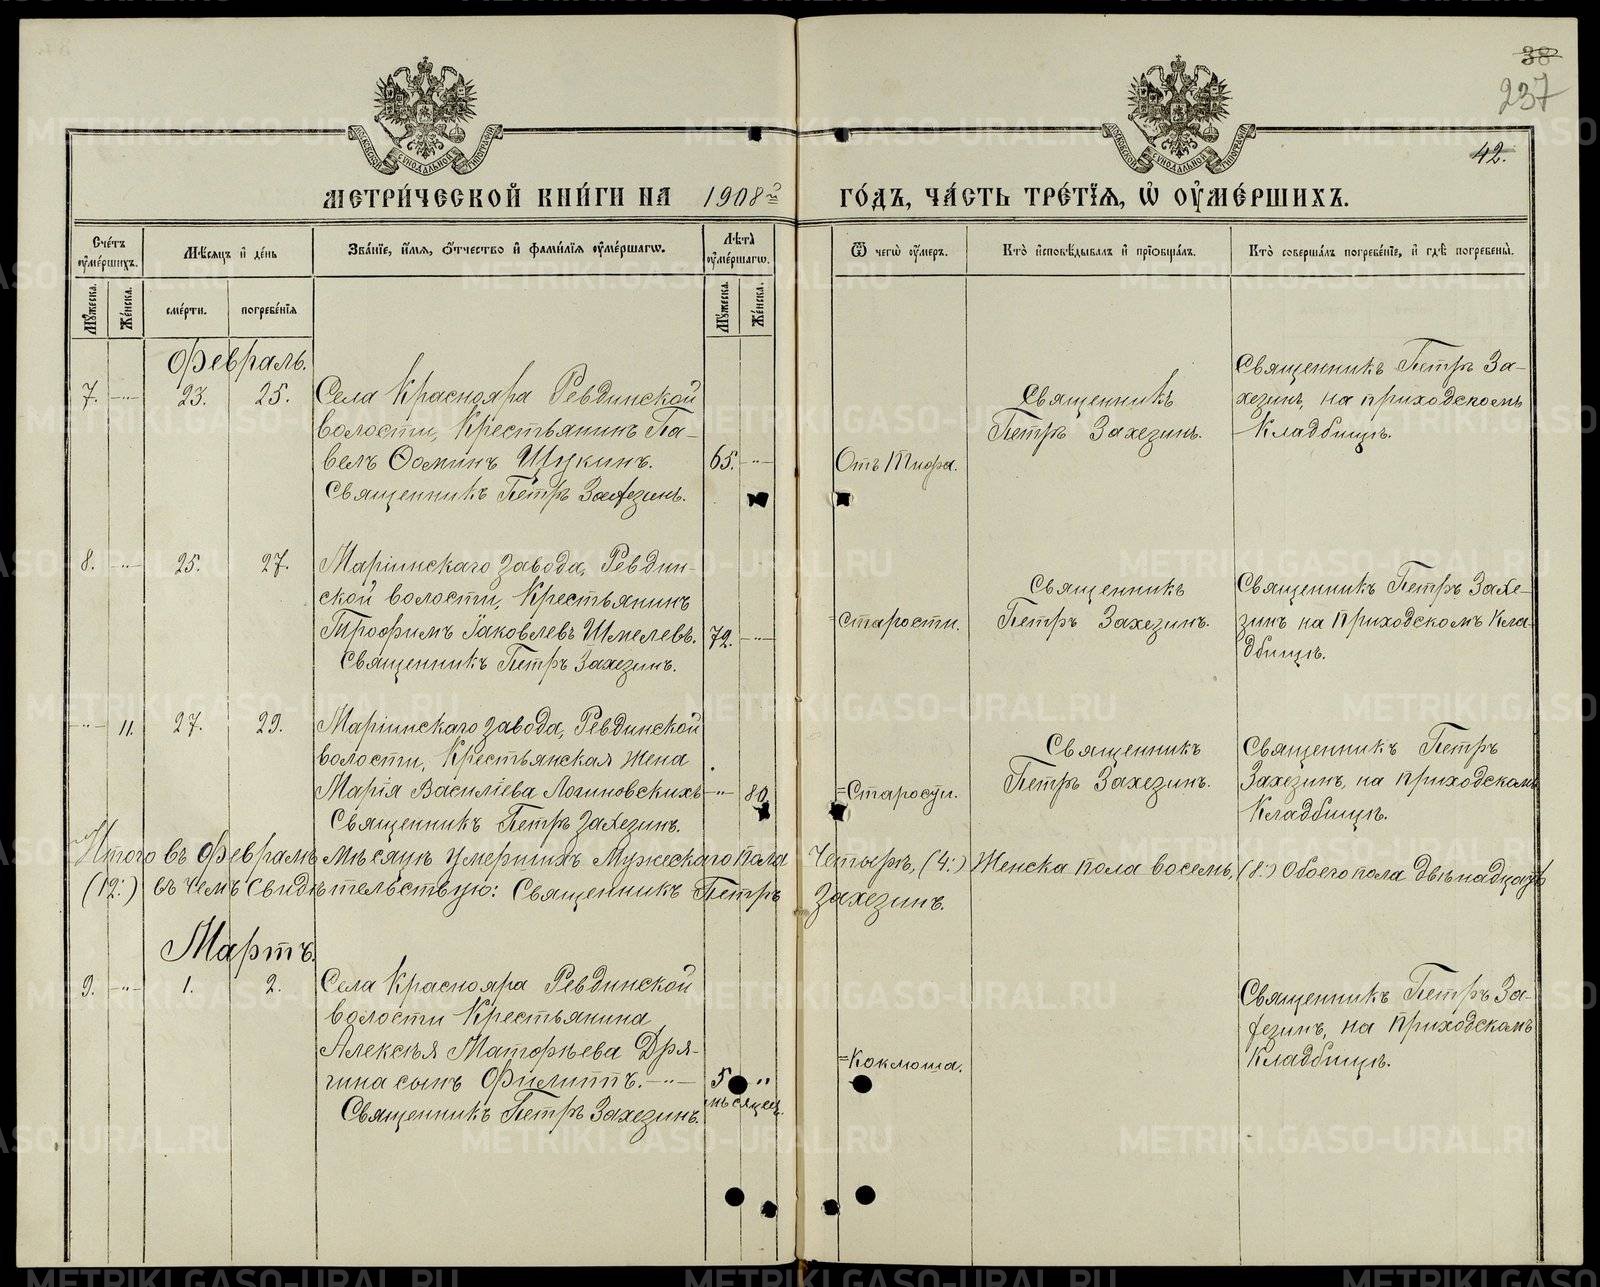 38
237
42.
МЕТРИ́ЧЕСКОЙ КНИ́ГИ НА 1908 ГО́ДЪ, ЧА́СТЬ ТРЕ́ТЇЯ, Ѡ҆ ОУ҆МЕ́РШИХЪ.
Сче́тъ оу҆ме́ршихъ.
Мѣ́сяцъ и҆ де́нь
Зва́нїе, и҆́мя, ѻ҆́тчество и҆ фами́лїя оу҆ме́ршагѡ.
Лѣ́та оу҆ме́ршагѡ.
Ѿ чегѡ̀ оу҆́меръ.
Кто̀ и҆сповѣ́дывалъ и҆ прїѡбща́лъ.
Кто̀ соверша́лъ погребе́нїе, и҆ гдѣ̀ погребены̀.
Мꙋ́жеска.
Же́нска.
сме́рти.
погребе́нїя
Мꙋ́жеска.
Же́нска.
Февраль.
7. -"- 23. 25.
Села Краснояра Ревдинской
волости, Крестьянинъ Па-
велъ Ѳоминъ Щукинъ.
65. -"-
Священникъ Петръ Захезинъ.
Отъ Тифа.
Священникъ
Петръ Захезинъ.
Священникъ Петръ За-
хезинъ, на приходскомъ
Кладбищѣ.
8. -"- 25. 27.
Маріинскаго завода, Ревдин-
ской волости, Крестьянинъ
Трофимъ Іаковлевъ Шмелевъ.
72. -"-
Священникъ Петръ Захезинъ.
=Старости.
Священникъ
Петръ Захезинъ.
Священникъ Петръ Захе-
зинъ на Приходскомъ Кла-
дбищѣ.
-"- 11. 27. 29.
Маріинскаго завода, Ревдинской
волости, Крестьянская жена
Марія Василіева Логиновскихъ
-"- 80
Священникъ Петръ Захезинъ.
=Старости.
Священникъ
Петръ Захезинъ.
Священникъ Петръ
Захезинъ, на приходскомъ
Кладбищѣ.
Итого въ Февралѣ Мѣсяцѣ умершихъ Мужескаго пола Четыре, (4:) Женска пола восемь, (8:) Обоего пола двѣнадцать
(12:) въ чемъ свидѣтельствую: Священникъ Петръ Захезинъ.
Мартъ.
9. -"- 1. 2.
Села Краснояра Ревдинской
волости Крестьянина
Алексѣя Маторѣева Дря-
гина сынъ Филиппъ. -"-
5 "
мѣсяцев.
Священникъ Петръ Захезинъ.
=Коклюша.
Священникъ Петръ За-
хезинъ, на Приходскомъ
Кладбищѣ.
METRIKI.GASO-URAL.RU